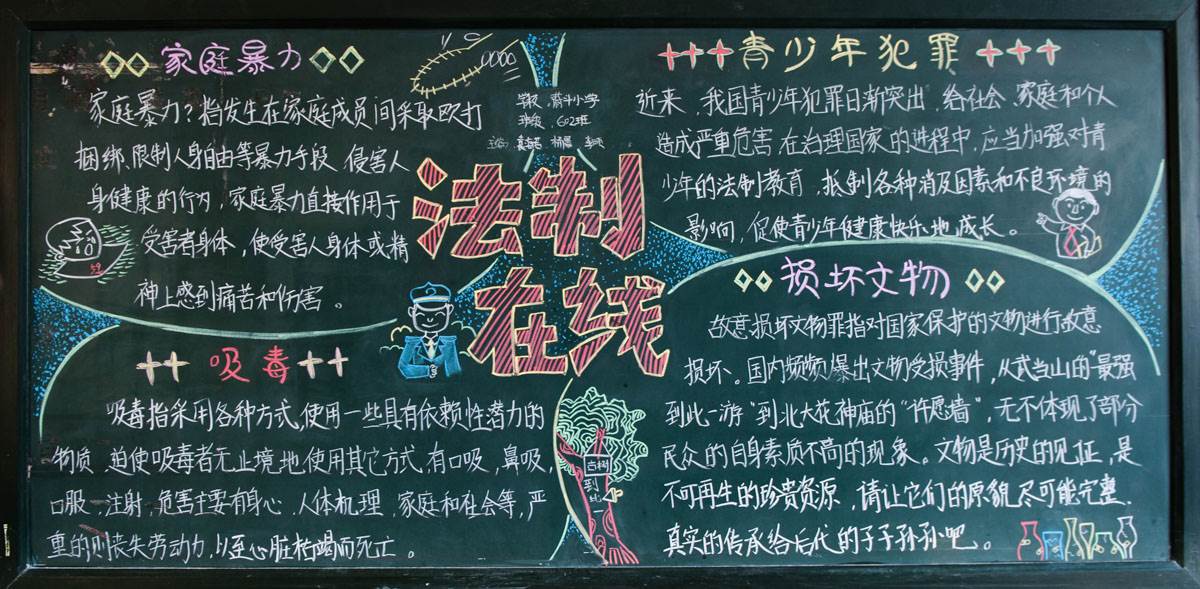 家庭暴力
家庭暴力？指发生在家庭成员间采取殴打
捆绑、限制人身自由等暴力手段 侵害人
身健康的行为，家庭暴力直接作用于
受害者身体，使受害人身体或精
神上感到痛苦和伤害。
小学
班级：602班
法制
在线
青少年犯罪
近来，我国青少年犯罪日渐突出，给社会、家庭和个人
造成严重危害，在治理国家的进程中，应当加强对青
少年的法制教育，抵制各种消及因素和不良环境的
影响，促使青少年健康快乐地成长。
吸毒
吸毒指采用各种方式，使用一些具有依赖性潜力的
物质，迫使吸毒者无止境地使用其它方式，有口吸，鼻吸，
口服、注射，危害主要有身心、人体机理、家庭和社会等，严
重的则丧失劳动力，以至心脏枯竭而死亡。
损坏文物
故意损坏文物罪指对国家保护的文物进行故意
损坏。国内频频爆出文物受损事件，从武当山的"最强
到此一游"到北大花神庙的"许愿墙"，无不体现了部分
民众的自身素质不高的现象。文物是历史的见证，是
不可再生的珍贵资源，请让它们的原貌尽可能完整、
真实的传承给后代的子子孙孙吧。
古树
到
此
一